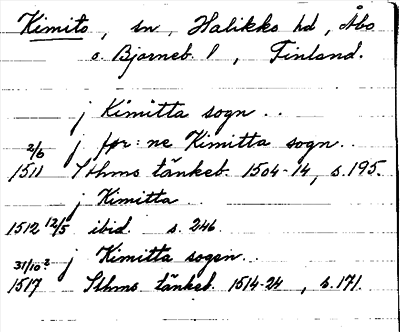 Kimito, sn, Halikko hd, Åbo
o. Bjorneb. l, Finland.
j Kimitta sogn ..
j før: ne Kimitta sogn ..
2/6
1511 Sthms tänkeb. 1504-14, s. 195.
j Kimitta ..
1512 12/5 ibid. s. 246
j Kimitta sogen ..
31/10 ?
1517 Sthms tänkeb. 1514-24, s. 171.